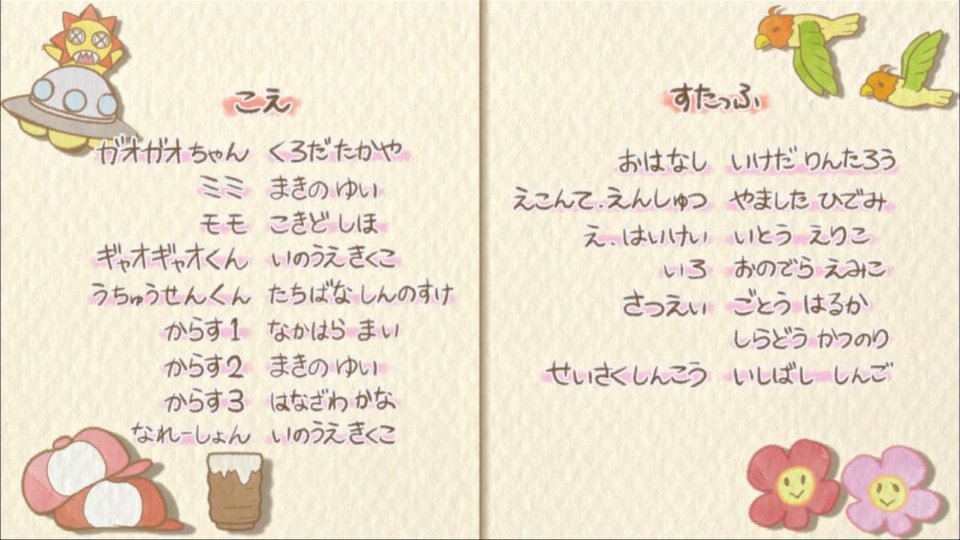 こえ
ガオガオちゃん くろだ たかや
ミミ まきの ゆい
モモ こきど しほ
ギャオギャオくん いのうえ きくこ
うちゅうせんくん たちばな しんのすけ
からす1 なかはら まい
からす2 まきの ゆい
からす3 はなざわ かな
なれーしょん いのうえ きくこ
すたっふ
おはなし いけだ りんたろう
えこんて.えんしゅつ やました ひでみ
え、はいけい いとう えりこ
いろ おのでら えみこ
さつえい ごとう はるか
しらどう かつのり
せいさくしんこう いしばし しんご